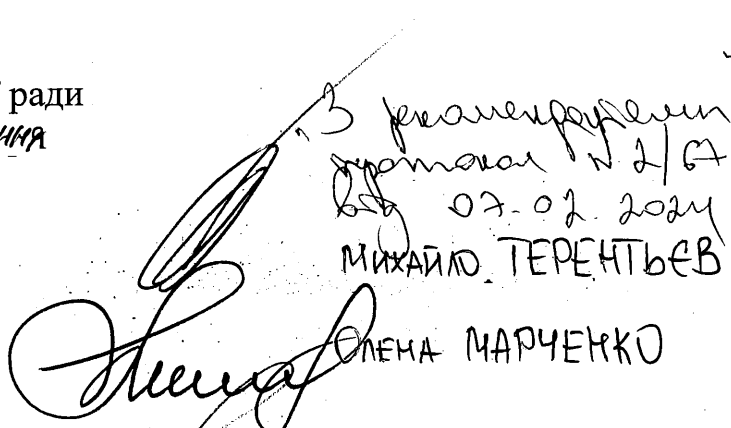 ради
ння
З рекомендаціями
протокол № 2/67
від 07.02.2024
МИХАЙЛО ТЕРЕНТЬЄВ
ОЛЕНА МАРЧЕНКО